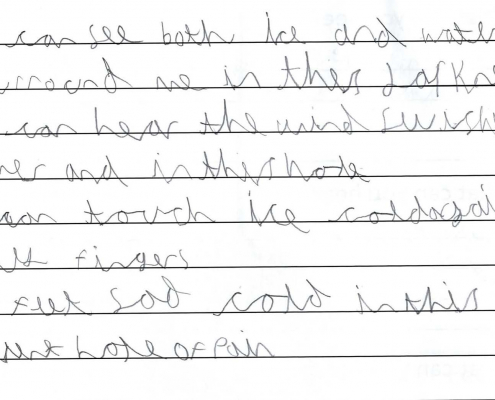 can see both ice and water
urround me in thes darkn
can hear the wind swish
ner and in this hole
can touch ice cold agai
fingers
feet sad cold in this
hole of pain